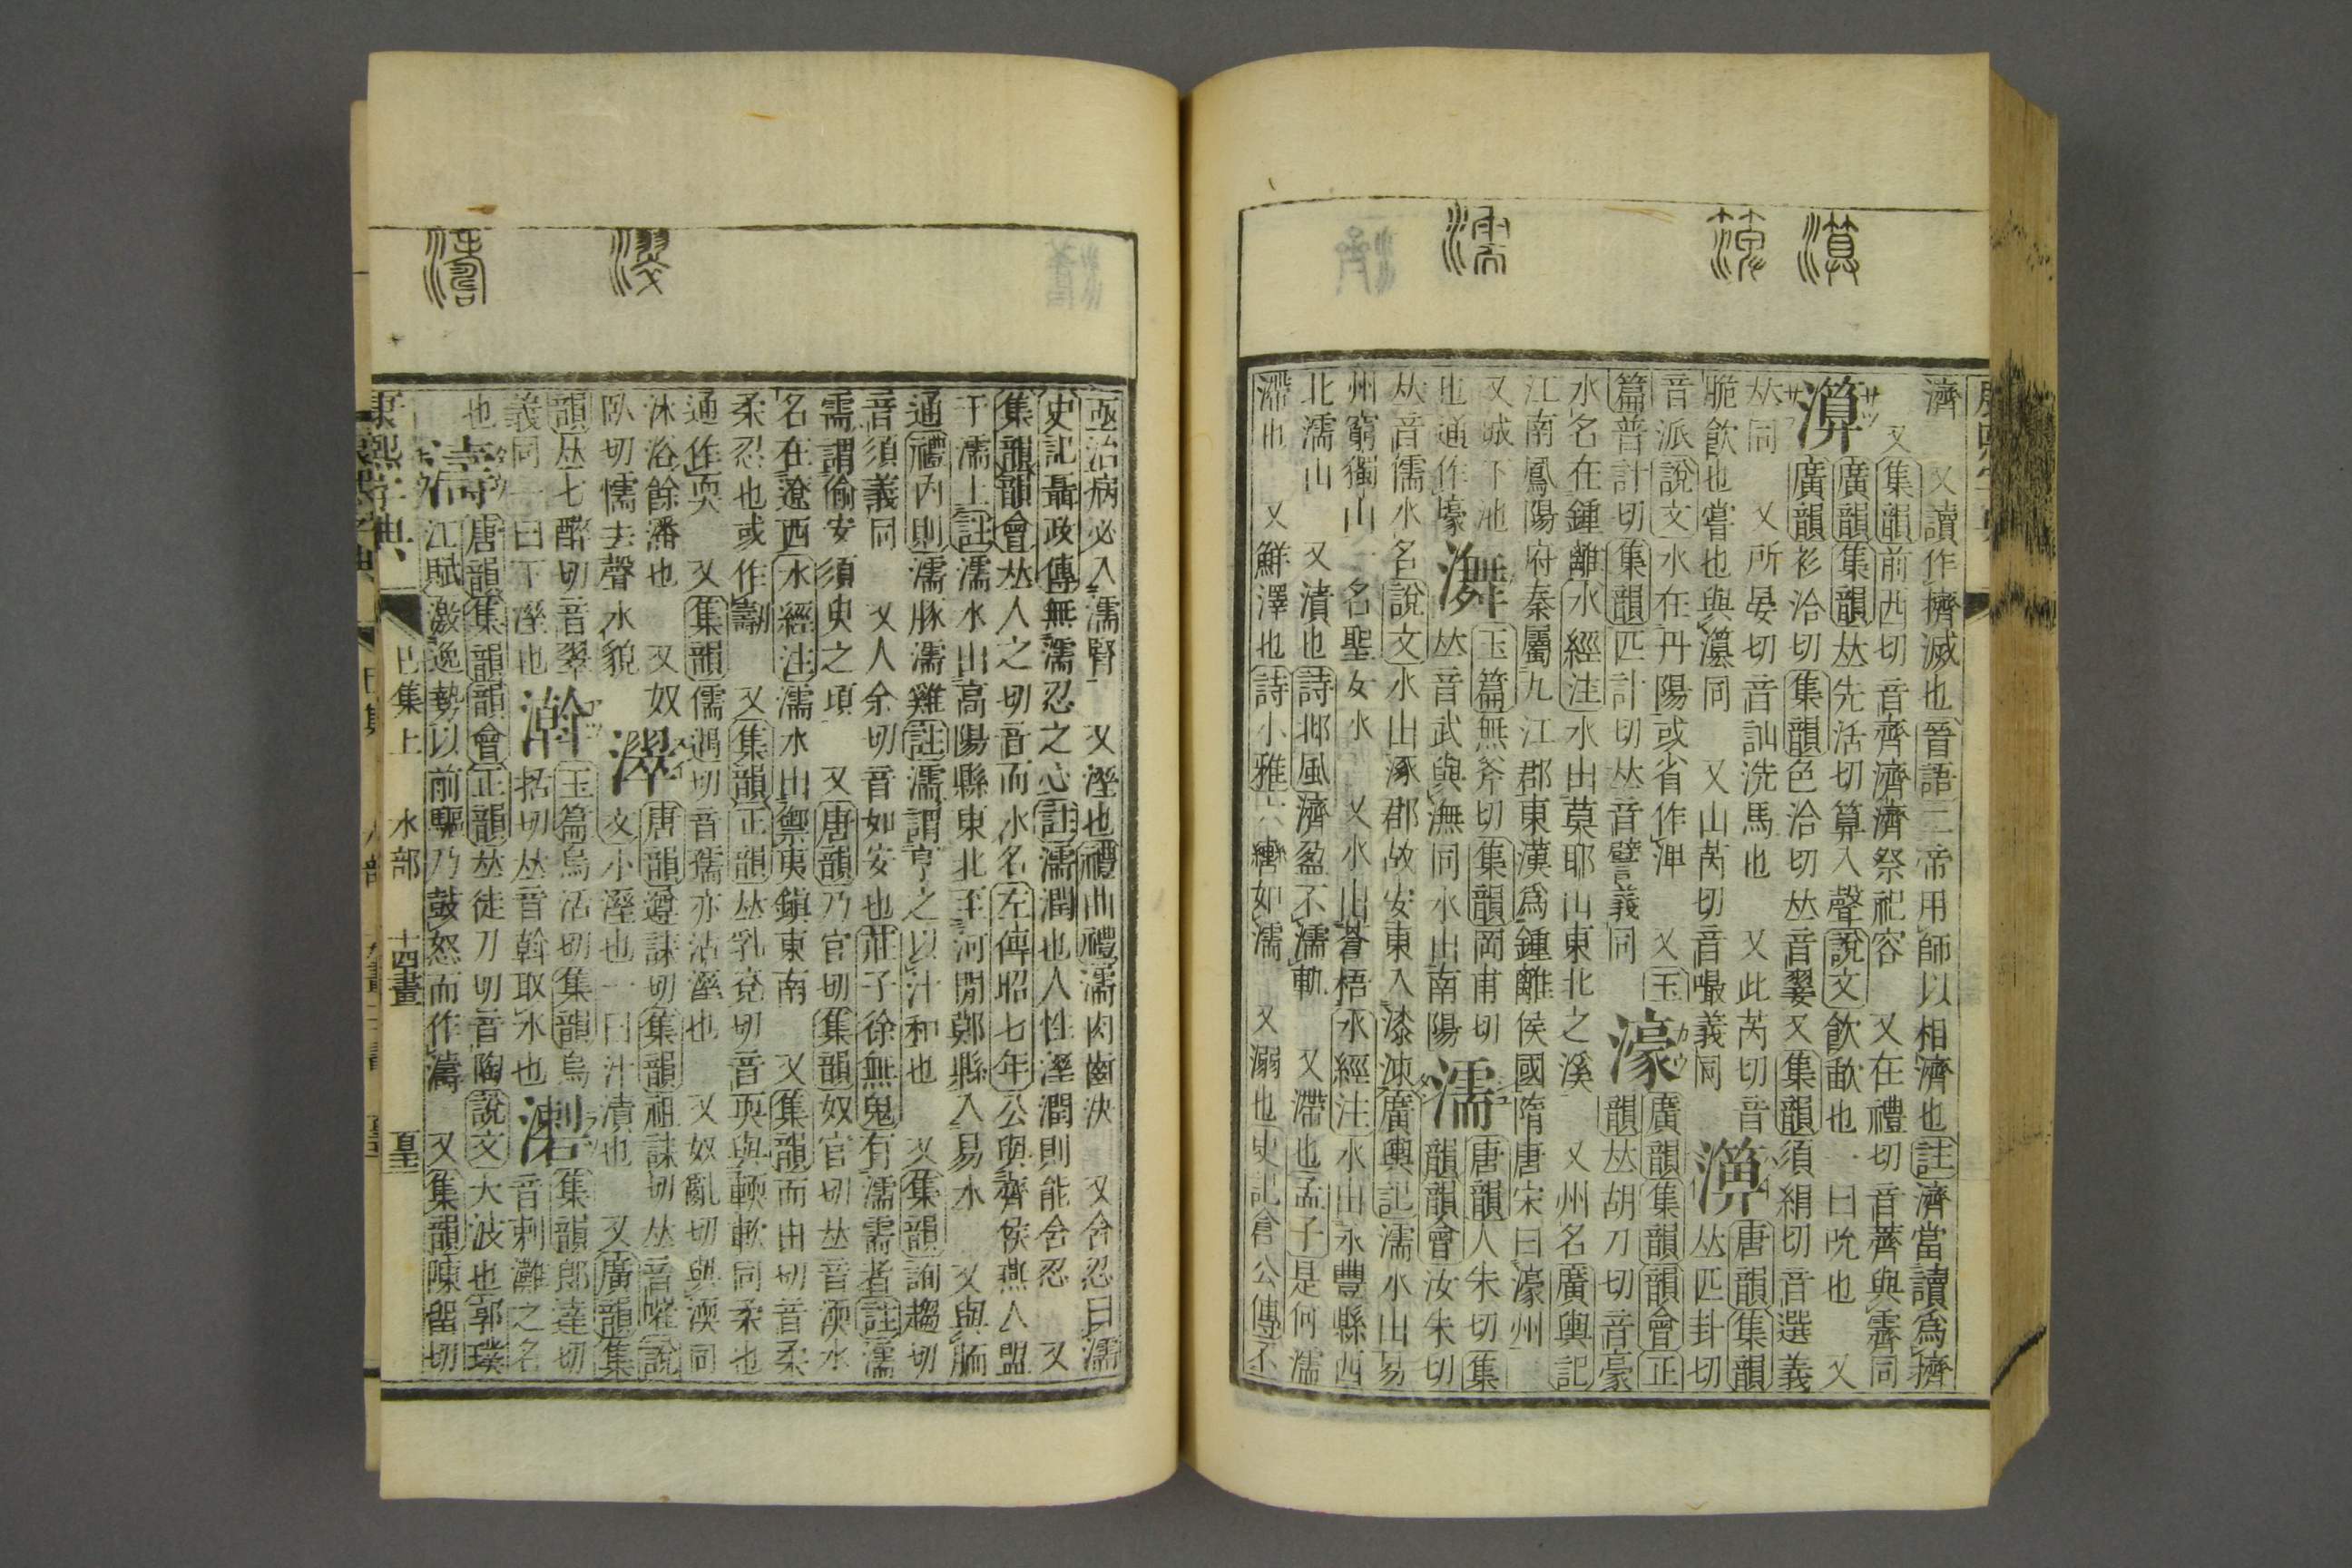 濟 又讀作擠滅也晉語二帝用師以相濟也註濟當讀爲擠
又集韻前西切音齊濟濟祭祀容 又在禮切音薺與霽同
廣韻集韻𠀤先活切算入聲說文飲歃也 一曰吮也 又
廣韻衫洽切集韻色洽切𠀤音翣又集韻須絹切音選義
𠀤同 又所晏切音訕洗馬也 又此芮切音
脆飲也嘗也與 同 又山芮切音 義同
唐韻集韻
𠀤匹卦切
音派說文水在丹陽或省作淠 又玉
篇普計切集韻匹計切𠀤音譬義同
濠 廣韻集韻韻會正
韻𠀤胡刀切音豪
水名在鍾離水經注水出莫耶山東北之溪 又州名廣輿記
江南鳳陽府秦屬九江郡東漢爲鍾離侯國隋唐宋曰濠州
又城下池
也通作壕
玉篇無斧切集韻罔甫切
𠀤音武與潕同水出南陽
濡 唐韻人朱切集
韻韻會汝朱切
𠀤音儒水名說文水出涿郡故安東入漆涑廣輿記濡水出易
州窮獨山一名聖女水 又水出蒼梧水經注水出永豐縣西
北濡山 又漬也詩邶風濟盈不濡軌 又滯也孟子是何濡
滯也 又鮮澤也詩小雅六轡如濡 又溺也史記倉公傳不
亟治病必入濡腎 又溼也禮曲禮濡肉齒決 又含忍曰濡
史記聶政傳無濡忍之心註濡潤也人性溼潤則能含忍 又
集韻韻會𠀤人之切音而水名左傳昭七年公與齊侯燕人盟
于濡上註濡水出高陽縣東北至河閒鄚縣入易水 又與胹
通禮內則濡豚濡雞註濡謂亨之以汁和也 又集韻詢趨切
音須義同 又人余切音如安也莊子徐無鬼有濡需者註濡
需謂偷安須臾之頃 又唐韻乃官切集韻奴官切𠀤音渜水
名在遼西水經注濡水出禦夷鎮東南 又集韻而由切音柔
柔忍也或作 又集韻正韻𠀤乳兗切音耎與輭軟同柔也
通作耎 又集韻儒遇切音孺亦沾溼也 又奴亂切與渜同
沐浴餘潘也 又奴
臥切懦去聲水貌
濢 唐韻遵誄切集韻祖誄切𠀤音嶊說
文小溼也一曰汁漬也 又廣韻集
韻𠀤七醉切音翠
義同一曰下溼也
濣 玉篇烏活切集韻烏
括切𠀤音斡取水也
集韻郎達切
音剌灘之名
也
濤 唐韻集韻韻會正韻𠀤徒刀切音陶說文大波也郭璞
江賦激逸勢以前驅乃鼓怒而作濤 又集韻陳留切
康熙字典 巳集上 水部 十四畫